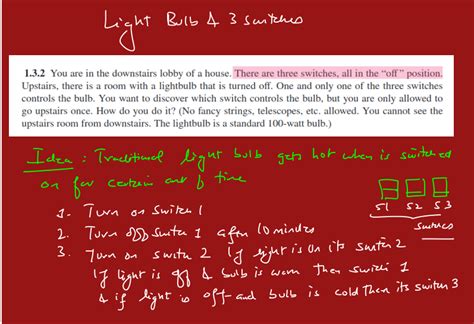 Light Bulb & 3 switches
1.3.2 You are in the downstairs lobby of a house. There are three switches, all in the "off" position.
Upstairs, there is a room with a lightbulb that is turned off. One and only one of the three switches
controls the bulb. You want to discover which switch controls the bulb, but you are only allowed to
go upstairs once. How do you do it? (No fancy strings, telescopes, etc. allowed. You cannot see the
upstairs room from downstairs. The lightbulb is a standard 100-watt bulb.)
Idea : Traditional light bulb gets hot when is switched
on for certain amt of time
S1 S2 S3
switches
1- Turn on Switch 1
2. Turn off switch 1 after 10 minutes
3. Turn on switch 2 If light is on its switch 2
If light is off & bulb is warm then switch 1
& if light is off and bulb is cold then its switch 3